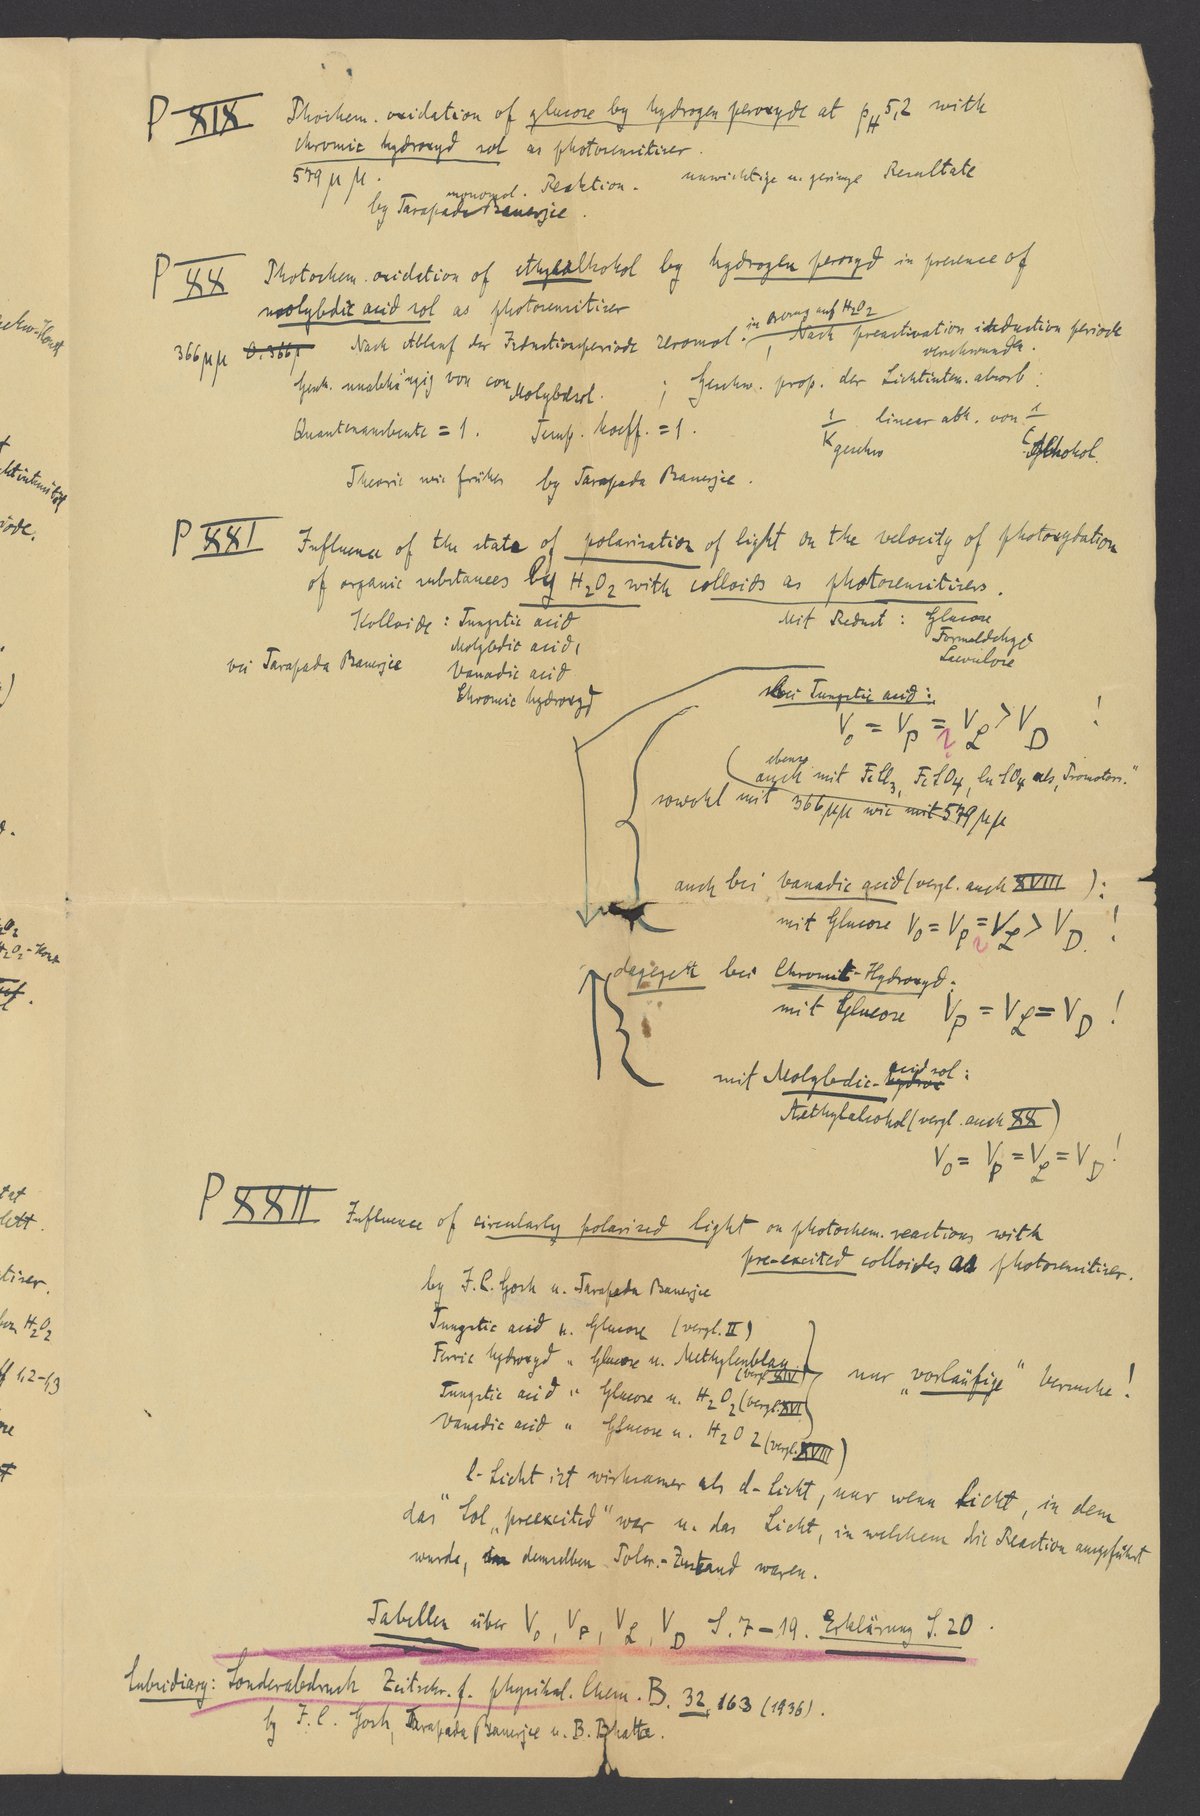 P XIX Phochem. oxidation of glucose by hydrogen peroxyde at pH 5,2 with
chromic hydroxyd sol as photosensitiser.
579 µµ. monomol. Reaktion. unwichtige u. geringe Resultate
by Tarapada Banerjee.
P XX Photochem. oxidation of ethylalkohol by hydrogen peroxyd in presence of
molybdic acid sol as photosensitiser
in Bezug auf H2O2
366 µµ Nach Ablauf der Inductionsperiode zeromol. , Nach preactivation induction periode
verschwunden.
Gesch. unabhängig von con Molybdsol. ; Geschw. prop. der Lichtinten. absorb:
Quantenausbeute = 1. Temp. Koeff. = 1. 1/K geschw linear abh. von 1/C Alkohol.
Theorie wie früher by Tarapada Banerjee.
P XXI Influence of the state of polarisation of light on the velocity of photoxydation
of organic substances by H2O2 with colloids as photosensitisers.
Kolloide: Tungstic acid Mit Redukt: Glucose
Molybdic acid, Formaldehyd
bei Tarapada Banerjee Vanadic acid Laevulose
Chromic hydroxyd
bei Tungstic acid:
Vo = VP = VL > VD !
ebenso
(auch mit FeCl3, FeSO4, CuSO4 als "Promotors."
sowohl mit 366 µµ wie mit 579 µµ
auch bei Vanadic acid (vergl. auch XVIII):
mit Glucose Vo = VP = VL > VD !
dagegen bei Chromic-Hydroxyd:
mit Glucose VP = VL = VD !
mit Molybdic-acid sol:
Aethylalcohol (vergl. auch XX)
Vo = VP = VL = VD !
P XXII Influence of circularly polarised light on photochem. reactions with
pre-excited colloides as photosensitiser.
by J. C. Gosh u. Tarapada Banerjee
Tungstic acid u. Glucose (vergl. II)
Ferric hydroxyd " Glucose u. Methylenblau
(vergl. XIV) nur „vorläufige" Versuche!
Tungstic acid " Glucose u. H2O2 (vergl. XVI)
Vanadic acid " Glucose u. H2O2 (vergl. XVIII)
l-Licht ist wirksamer als d-Licht, nur wenn Licht, in dem
das Sol „preexcited" war u. das Licht, in welchem die Reaction ausgeführt
wurde, in demselben Polar.-Zustand waren.
Tabellen über Vo, VP, VL, VD S. 7–19. Erklärung S. 20.
Subsidiary: Sonderabdruck Zeitschr. f. physikal. Chem. B. 32, 163 (1936).
by J. C. Gosh, Tarapada Banerjee u. B. Bhatta.